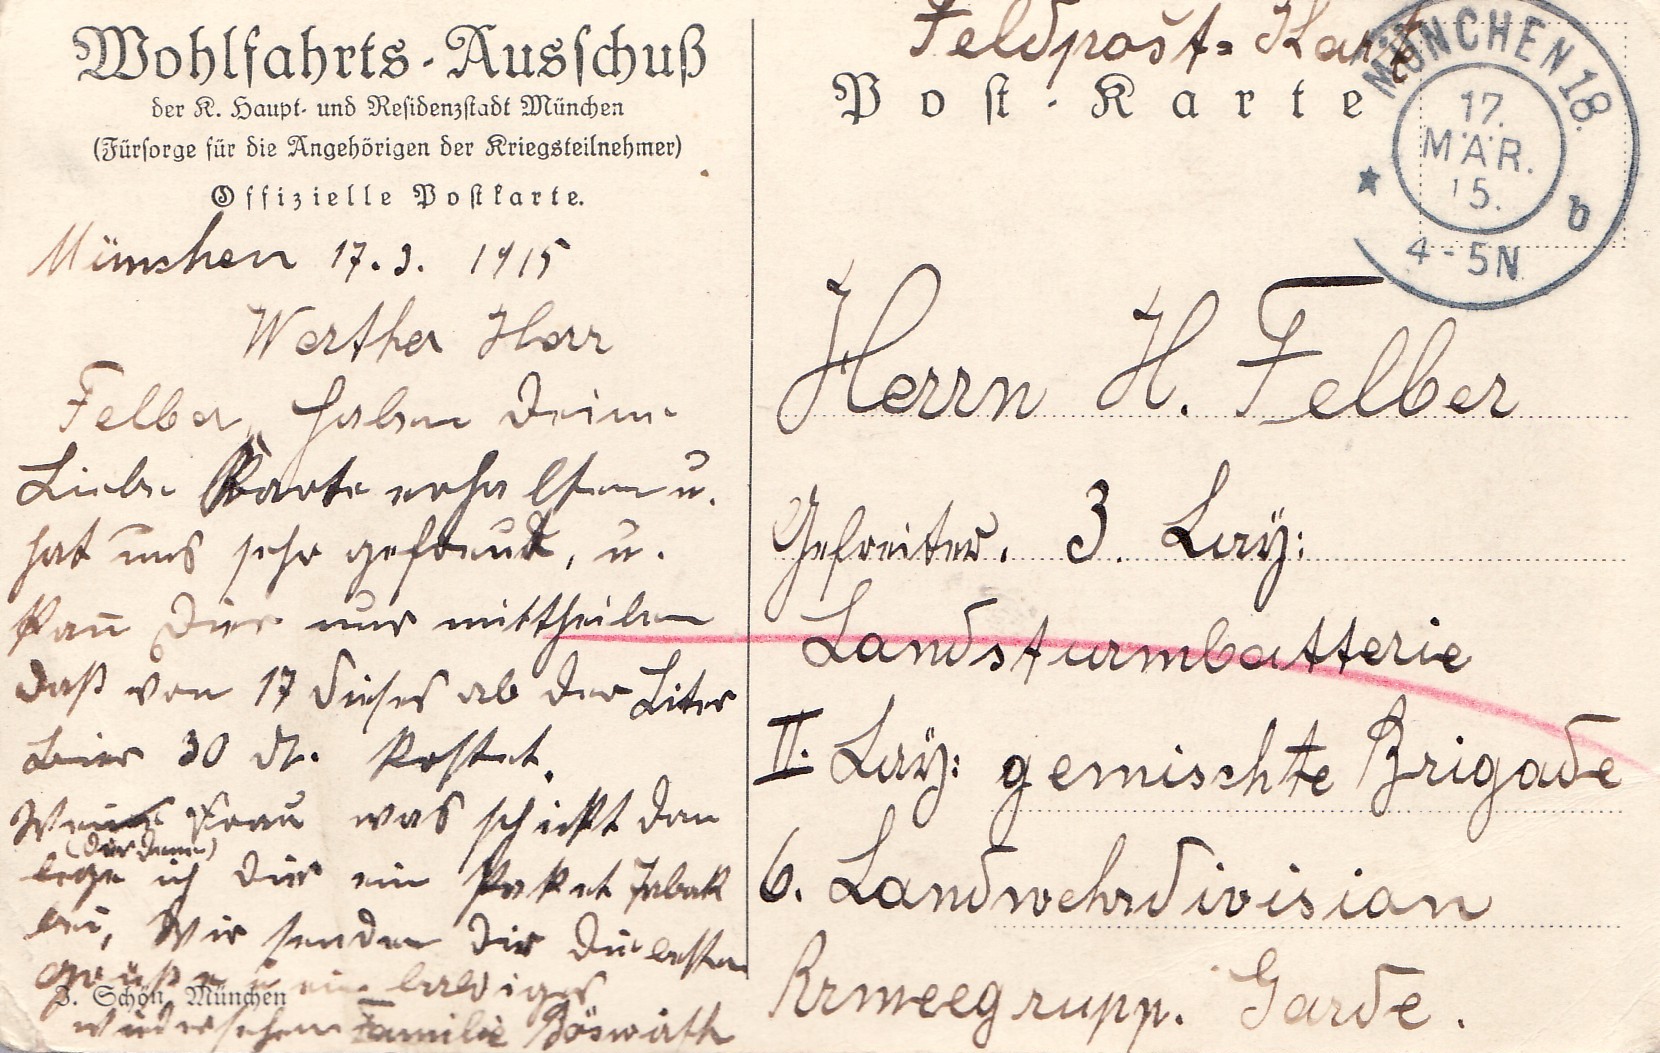 Wohlfahrts-Ausschuß
der K. Haupt- und Residenzstadt München
(Fürsorge für die Angehörigen der Kriegsteilnehmer)
Offizielle Postkarte.
München 17. 3. 1915
Werther Herr
Felber, haben Deine
Liebe Karte erhalten u.
hat uns sehr gefreut, u.
kan̄ Dir nur mittheilen
daß von 17 dieses ab der Liter
Bier 30 Pf. kostet.
Wenn Frau was schickt dan
(Dir Deine)
lege ich Dir ein Paket Tabak
bei, Wir senden Dir die besten
Grüße u ein baldiges
wiedersehen Familie Böswirth
J. Schön, München
Feldpost-Karte
Post-Karte
MÜNCHEN 18.
17.
MÄR.
15.
b
4-5N
Herrn H. Felber
Gefreiter. 3. Bay:
Landsturmbatterie
II. Bay: gemischte Brigade
6. Landwehrdivision
Armeegrupp. Garde.